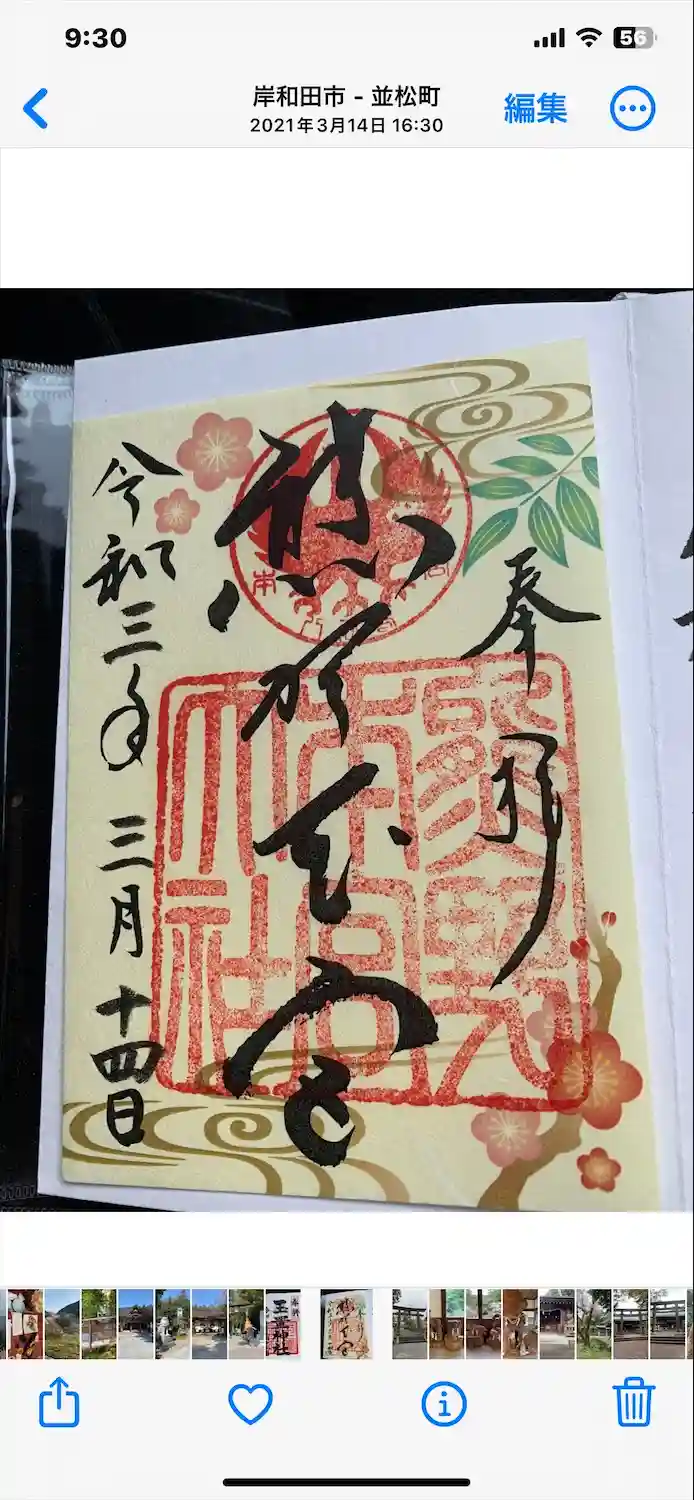 9:30
56
岸和田市 - 並松町
2021年3月14日 16:30
編集
奉拝
熊野本宮
熊野
本宮
大社
令和三年 三月 十四日